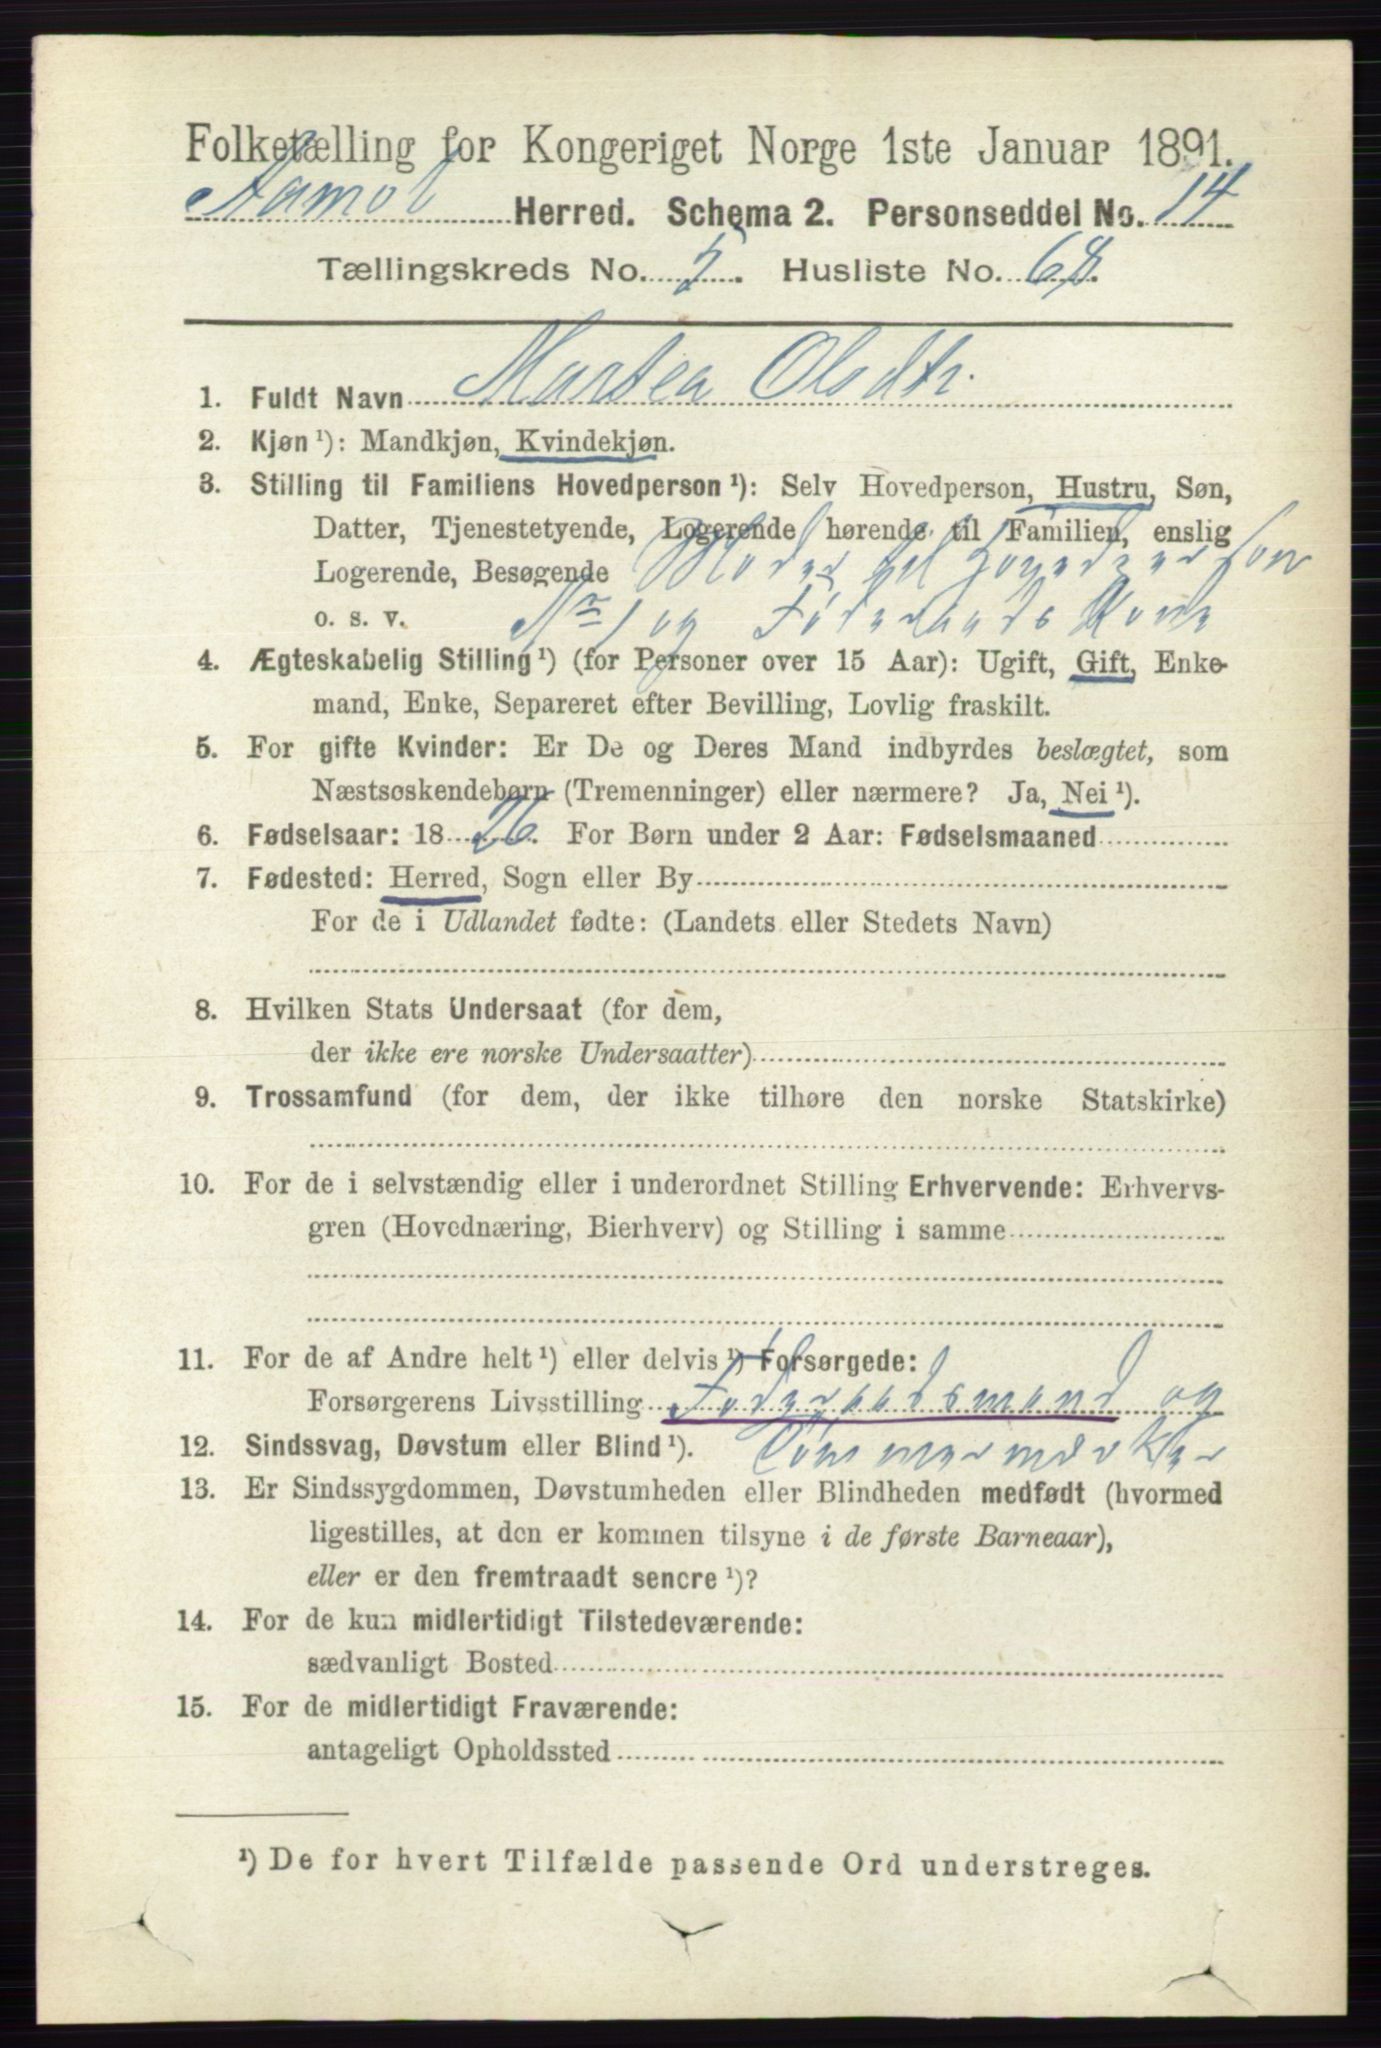 Folketælling for Kongeriget Norge 1ste Januar 1891.
Aamot Herred. Schema 2. Personseddel No. 14
Tællingskreds No. 5. Husliste No. 68.
1. Fuldt Navn Martea Olsdtr.
2. Kjøn ¹): Mandkjøn, Kvindekjøn.
3. Stilling til Familiens Hovedperson ¹): Selv Hovedperson, Hustru, Søn,
Datter, Tjenestetyende, Logerende hørende til Familien, enslig
Logerende, Besøgende Moder til Hovedperson
o. s. v. No 1 og Føderaads Kone
4. Ægteskabelig Stilling ¹) (for Personer over 15 Aar): Ugift, Gift, Enke-
mand, Enke, Separeret efter Bevilling, Lovlig fraskilt.
5. For gifte Kvinder: Er De og Deres Mand indbyrdes beslægtet, som
Næstsøskendebørn (Tremenninger) eller nærmere? Ja, Nei ¹).
6. Fødselsaar: 1826. For Børn under 2 Aar: Fødselsmaaned
7. Fødested: Herred, Sogn eller By
For de i Udlandet fødte: (Landets eller Stedets Navn)
8. Hvilken Stats Undersaat (for dem,
der ikke ere norske Undersaatter)
9. Trossamfund (for dem, der ikke tilhøre den norske Statskirke)
10. For de i selvstændig eller i underordnet Stilling Erhvervende: Erhvervs-
gren (Hovednæring, Bierhverv) og Stilling i samme
11. For de af Andre helt ¹) eller delvis ¹) Forsørgede:
Forsørgerens Livsstilling Føderaadsmand og
12. Sindssvag, Døvstum eller Blind ¹). Tømmermærker
13. Er Sindssygdommen, Døvstumheden eller Blindheden medfødt (hvormed
ligestilles, at den er kommen tilsyne i de første Barneaar),
eller er den fremtraadt senere ¹)?
14. For de kun midlertidigt Tilstedeværende:
sædvanligt Bosted
15. For de midlertidigt Fraværende:
antageligt Opholdssted
¹) De for hvert Tilfælde passende Ord understreges.